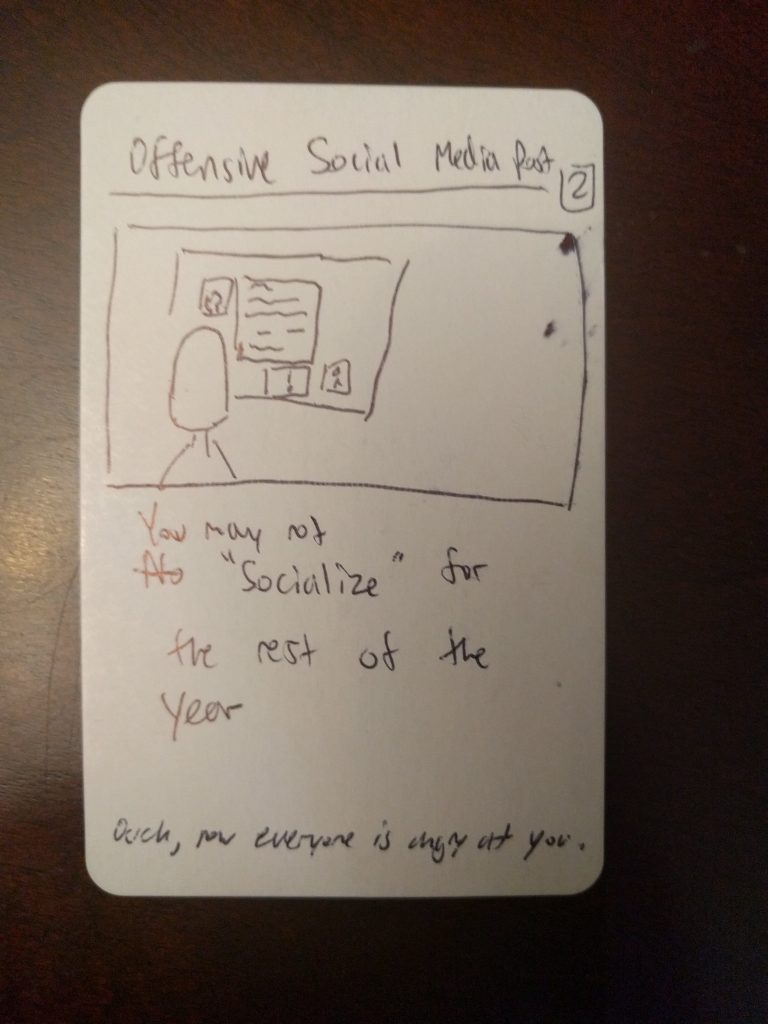 Offensive Social Media Post
2
You may not
No "Socialize" for
the rest of the
year
Ouch, now everyone is angry at you.